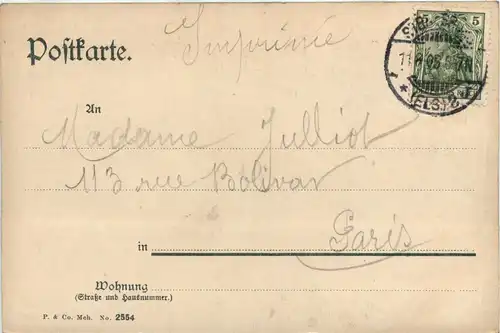 Postkarte.
Imprimé
5
(ELS)
An
Madame Julliot
113 rue Bolivar
in Paris
Wohnung
(Straße und Hausnummer.)
P. & Co. Meh. No. 2554